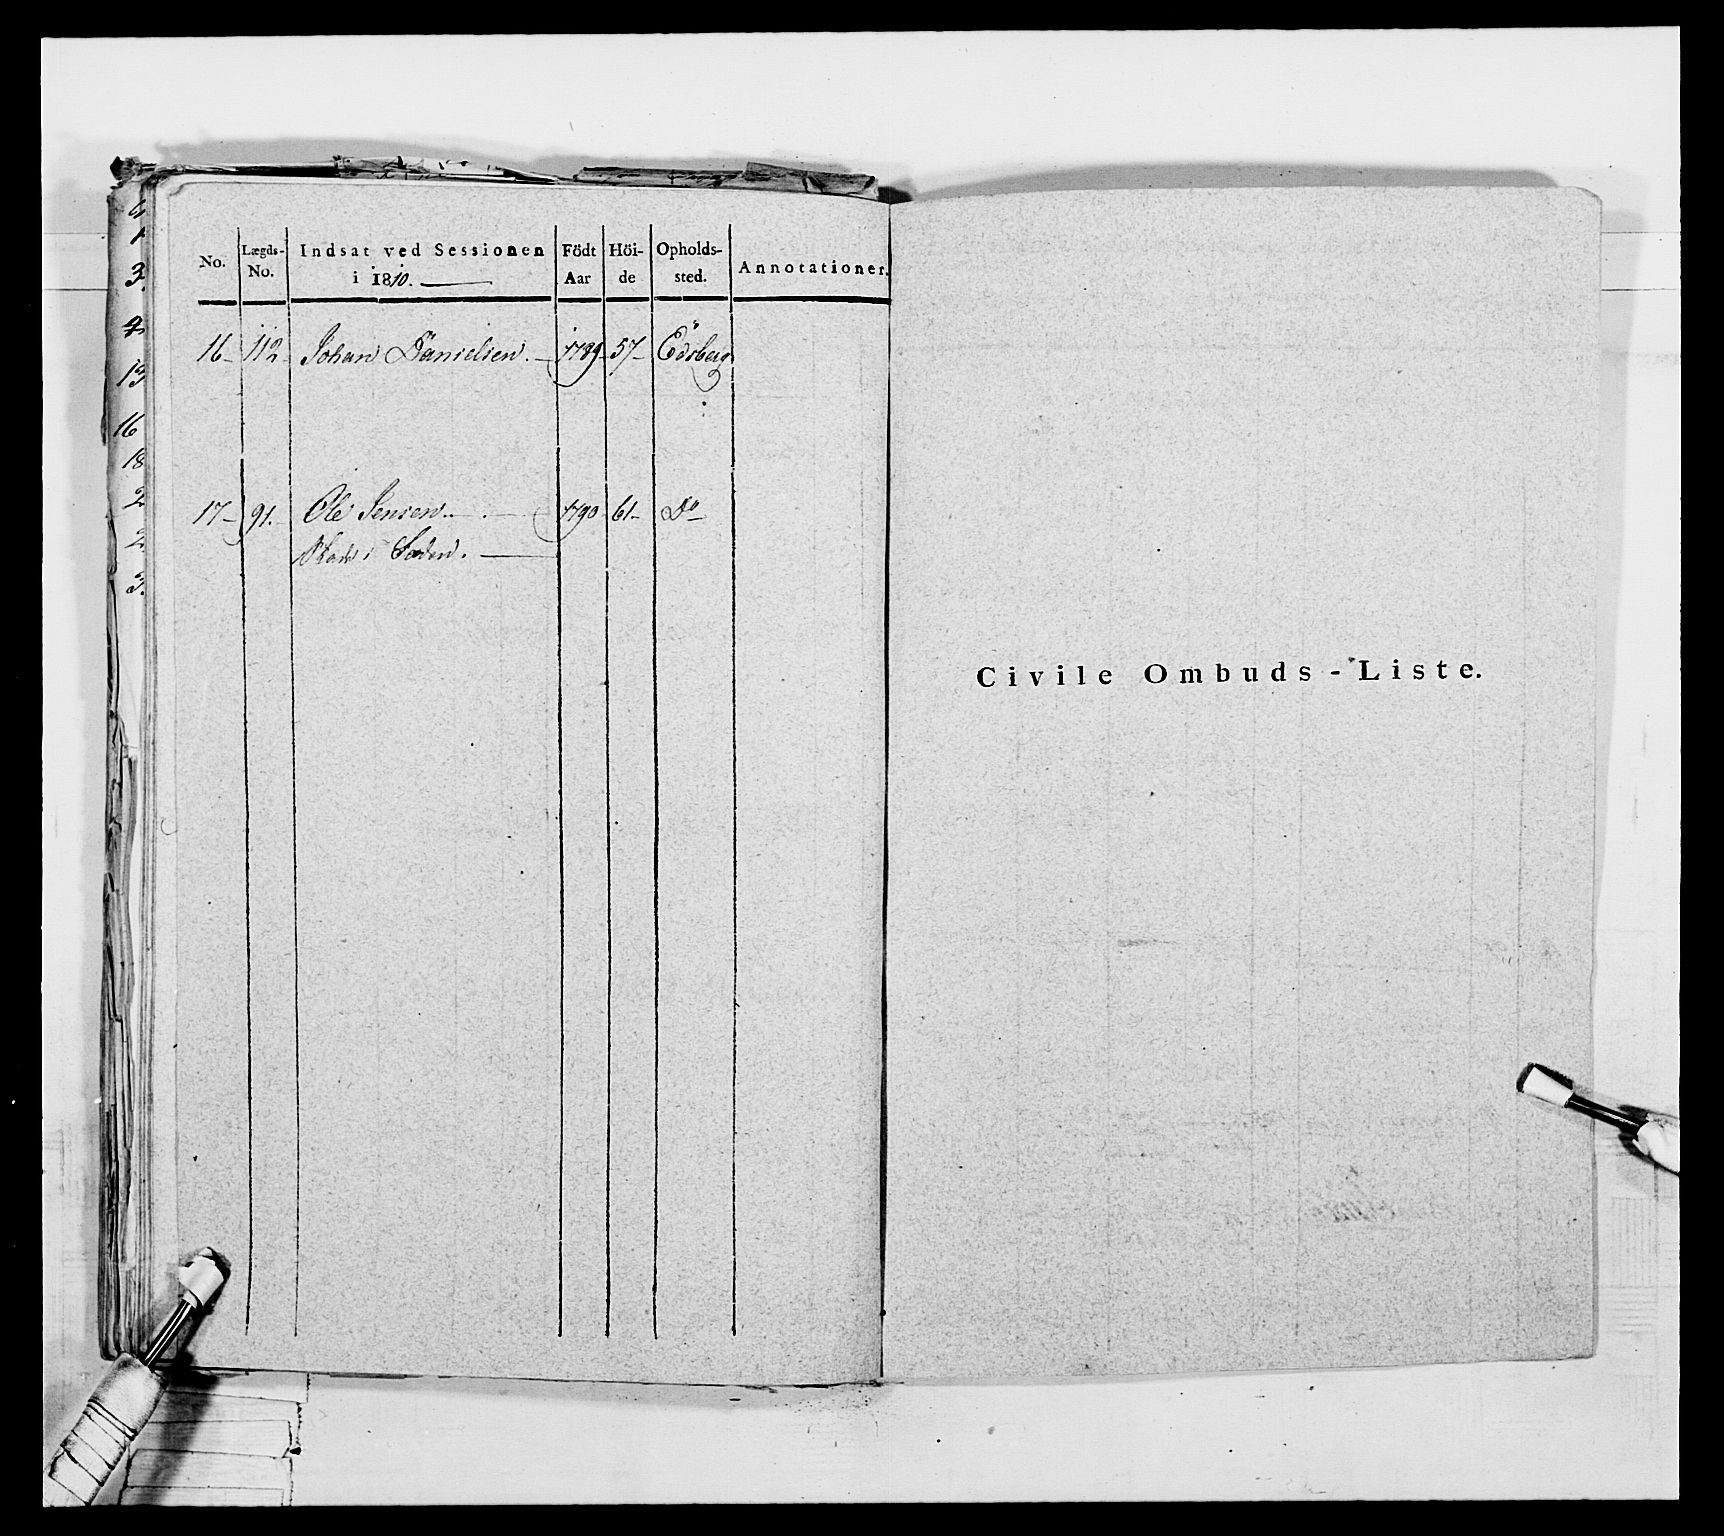 No. Lægds-No. Indsat ved Sessionen i 1810. Födt Aar Höide Opholdssted. Annotationer.
16 112 Johan Danielsen. 1789 57 Edsberg
17 91. Ole Jensen. 1790 61 Do
Civile Ombuds-Liste.
6
1
3.
4
13
16
18
2
2
3